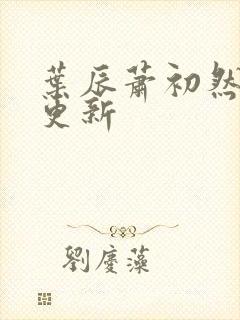 葉辰蕭初然
更新
劉慶藻